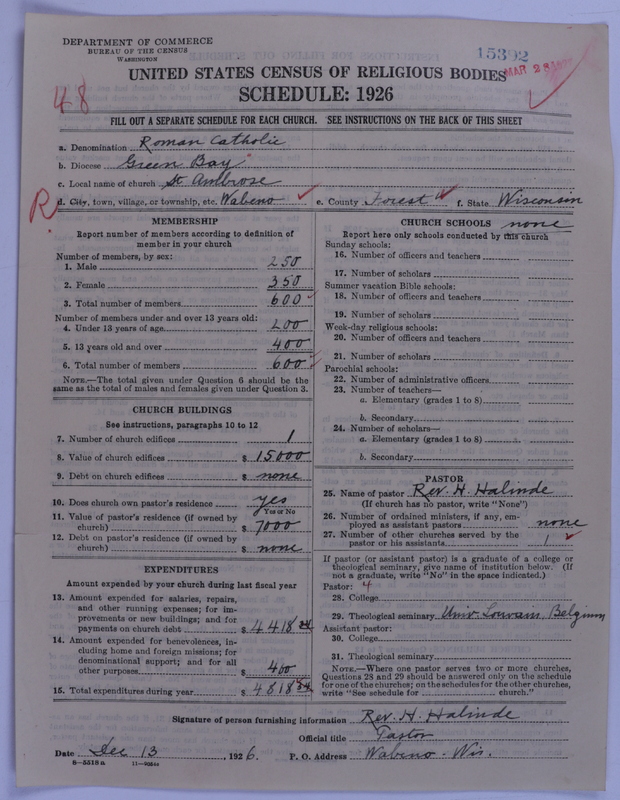 DEPARTMENT OF COMMERCE
BUREAU OF THE CENSUS
WASHINGTON
15392
MAR 28
48
UNITED STATES CENSUS OF RELIGIOUS BODIES
SCHEDULE: 1926
FILL OUT A SEPARATE SCHEDULE FOR EACH CHURCH. SEE INSTRUCTIONS ON THE BACK OF THIS SHEET
a. Denomination Roman Catholic
b. Diocese Green Bay
c. Local name of church St Ambrose
R
d. City, town, village, or township, etc. Wabeno e. County Forest f. State Wisconsin
MEMBERSHIP
Report number of members according to definition of
member in your church
Number of members, by sex:
1. Male 250
2. Female 350
3. Total number of members 600
Number of members under and over 13 years old:
4. Under 13 years of age 200
5. 13 years old and over 400
6. Total number of members 600
NOTE.—The total given under Question 6 should be the
same as the total of males and females given under Question 3.
CHURCH BUILDINGS
See instructions, paragraphs 10 to 12
7. Number of church edifices 1
8. Value of church edifices $ 15000
9. Debt on church edifices $ none
10. Does church own pastor's residence yes
Yes or No
11. Value of pastor's residence (if owned by
church) $ 7000
12. Debt on pastor's residence (if owned by
church) $ none
EXPENDITURES
Amount expended by your church during last fiscal year
13. Amount expended for salaries, repairs,
and other running expenses; for im-
provements or new buildings; and for
payments on church debt $ 4418
14. Amount expended for benevolences, in-
cluding home and foreign missions; for
denominational support; and for all
other purposes $ 400
15. Total expenditures during year $ 4818
CHURCH SCHOOLS none
Report here only schools conducted by this church
Sunday schools:
16. Number of officers and teachers
17. Number of scholars
Summer vacation Bible schools:
18. Number of officers and teachers
19. Number of scholars
Week-day religious schools:
20. Number of officers and teachers
21. Number of scholars
Parochial schools:
22. Number of administrative officers
23. Number of teachers—
a. Elementary (grades 1 to 8)
b. Secondary
24. Number of scholars—
a. Elementary (grades 1 to 8)
b. Secondary
PASTOR
25. Name of pastor Rev. H. Halinde
(If church has no pastor, write "None")
26. Number of ordained ministers, if any, em-
ployed as assistant pastors none
27. Number of other churches served by the
pastor or his assistants 1
If pastor (or assistant pastor) is a graduate of a college or
theological seminary, give name of institution below. (If
not a graduate, write "No" in the space indicated.)
Pastor: 4
28. College
29. Theological seminary Univ. Louvain, Belgium
Assistant pastor:
30. College
31. Theological seminary
NOTE.—Where one pastor serves two or more churches,
Questions 28 and 29 should be answered only on the schedule
for one of the churches; on the schedules for the other churches,
write "See schedule for church."
Signature of person furnishing information Rev. H. Halinde
Official title Pastor
Date Dec 13, 1926. P. O. Address Wabeno - Wis.
8—5518 a